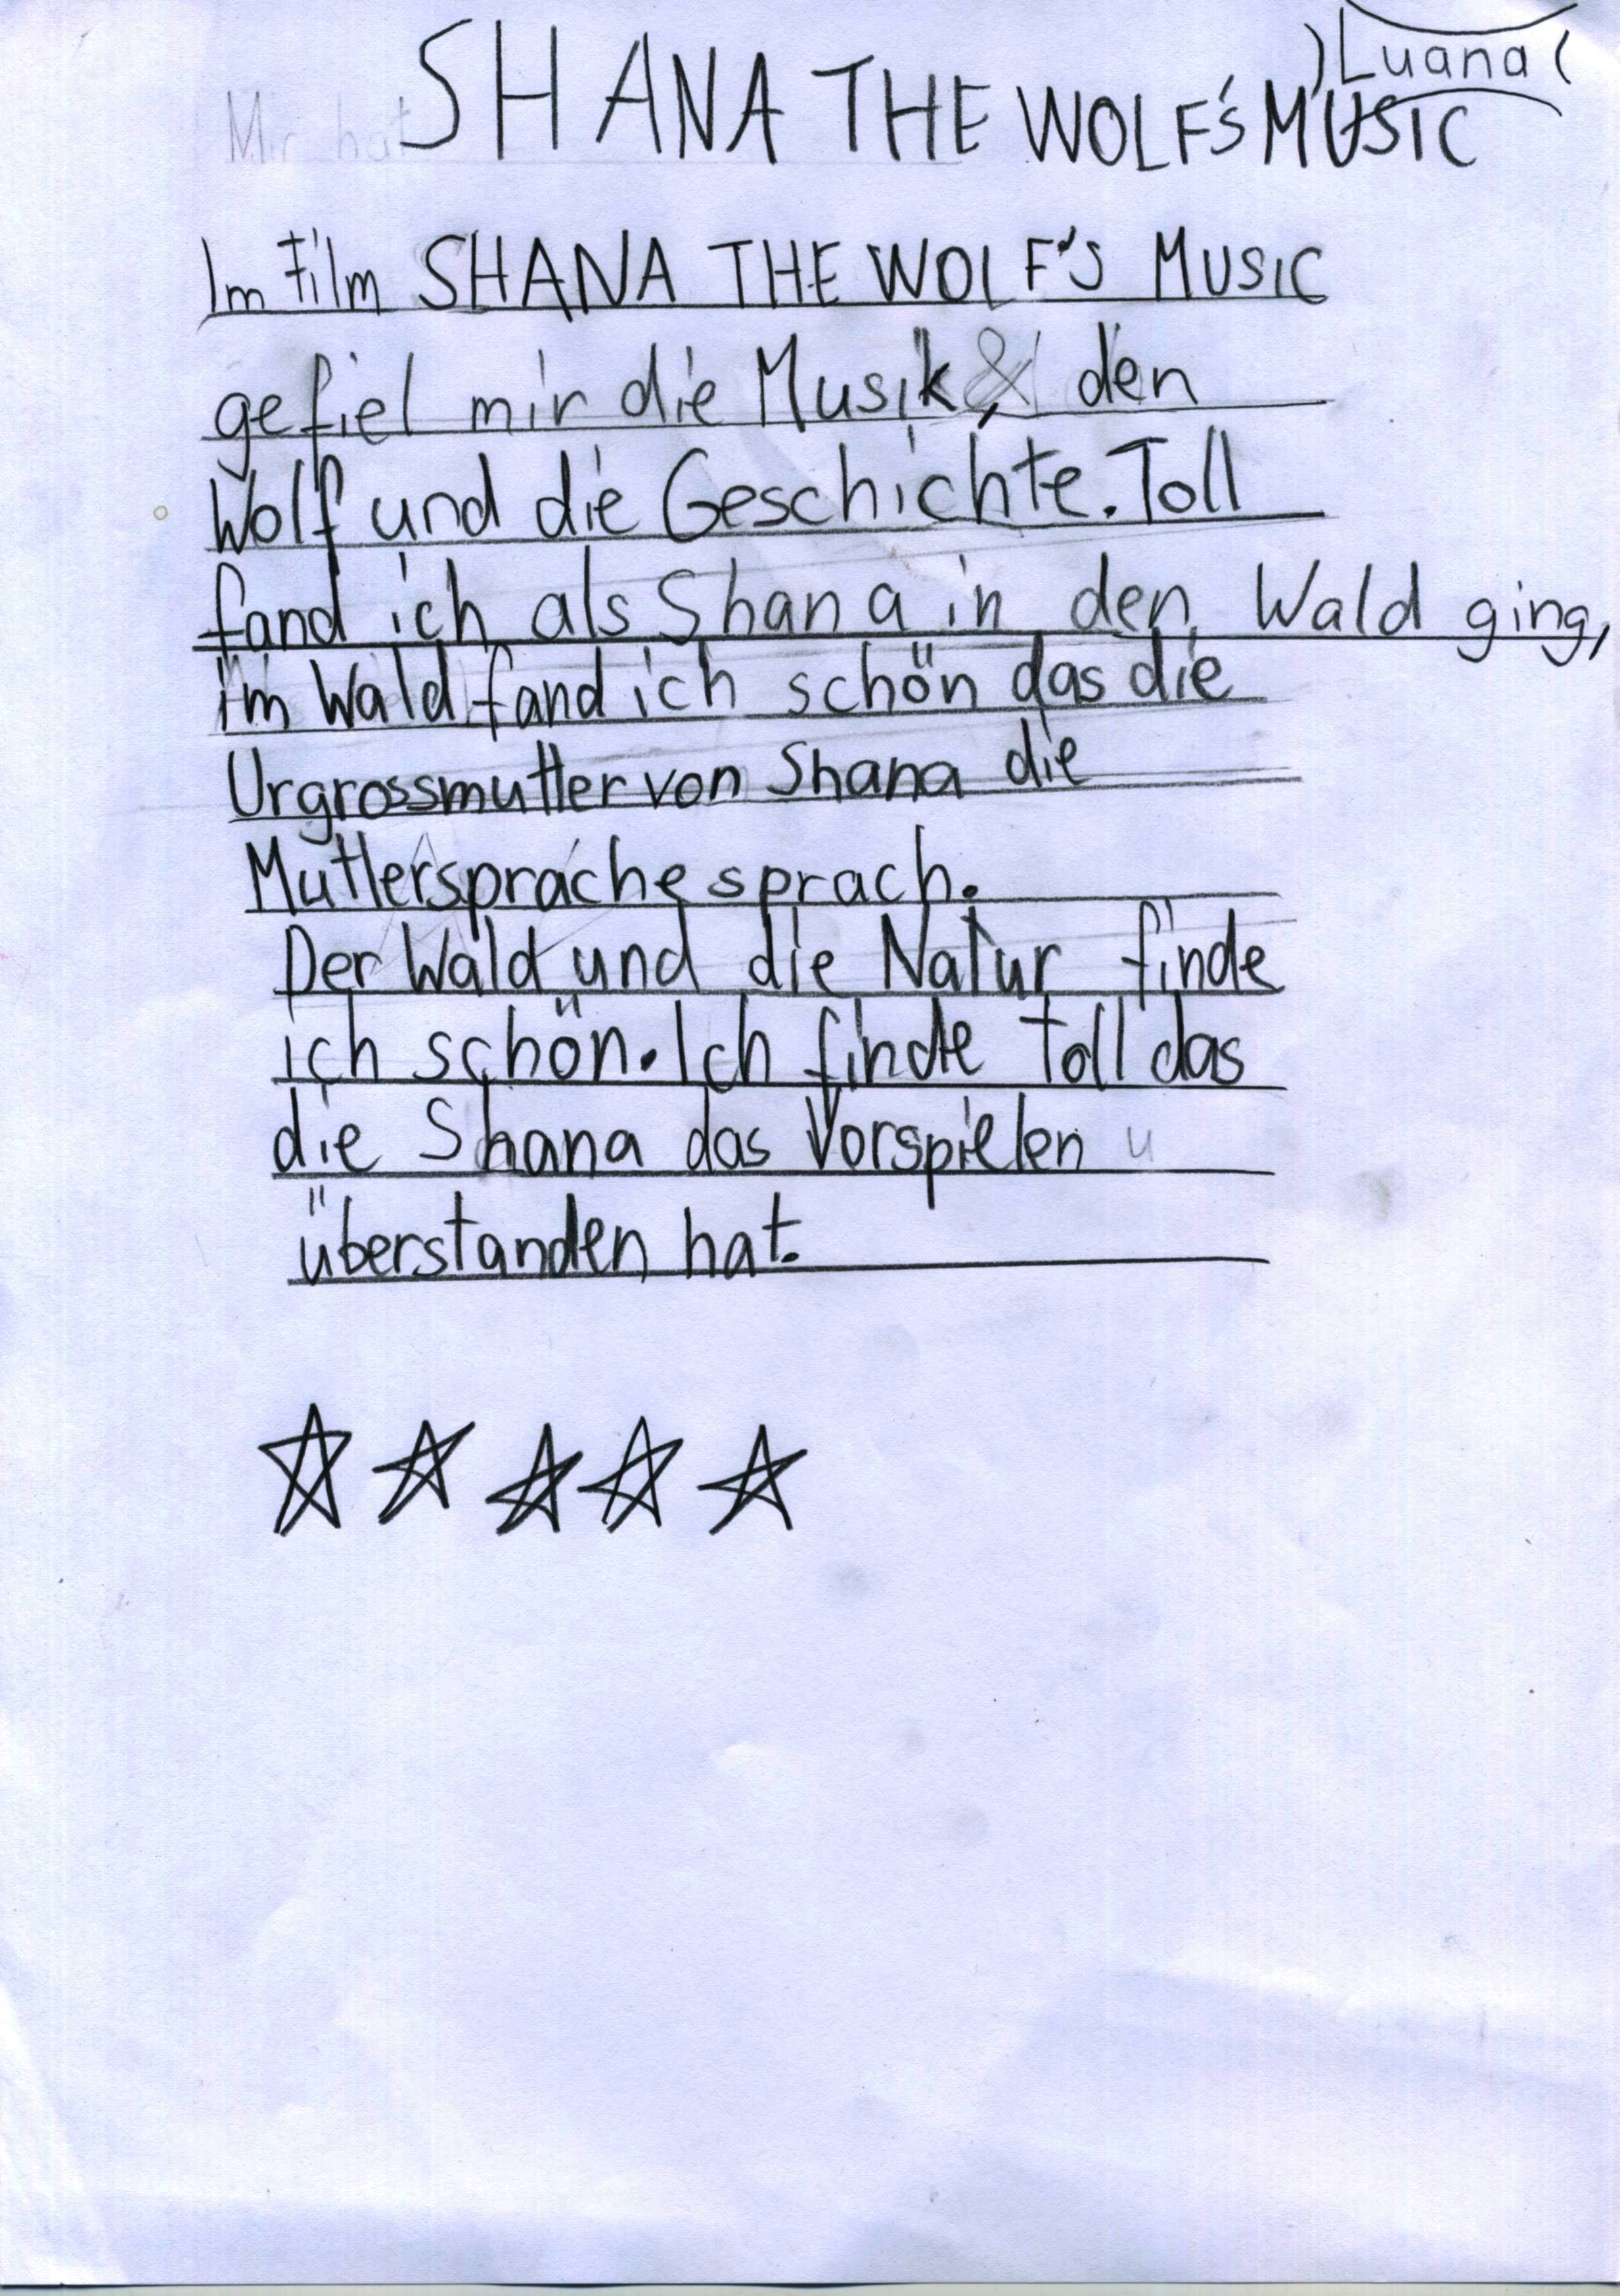 Luana
SHANA THE WOLF'S MUSIC
Mir hat
Im Film SHANA THE WOLF'S MUSIC
gefiel mir die Musik, den
Wolf und die Geschichte. Toll
fand ich als Shana in den Wald ging,
im Wald fand ich schön das die
Urgrossmutter von Shana die
Muttersprache sprach.
Der Wald und die Natur finde
ich schön. Ich finde toll das
die Shana das Vorspielen u
überstanden hat.